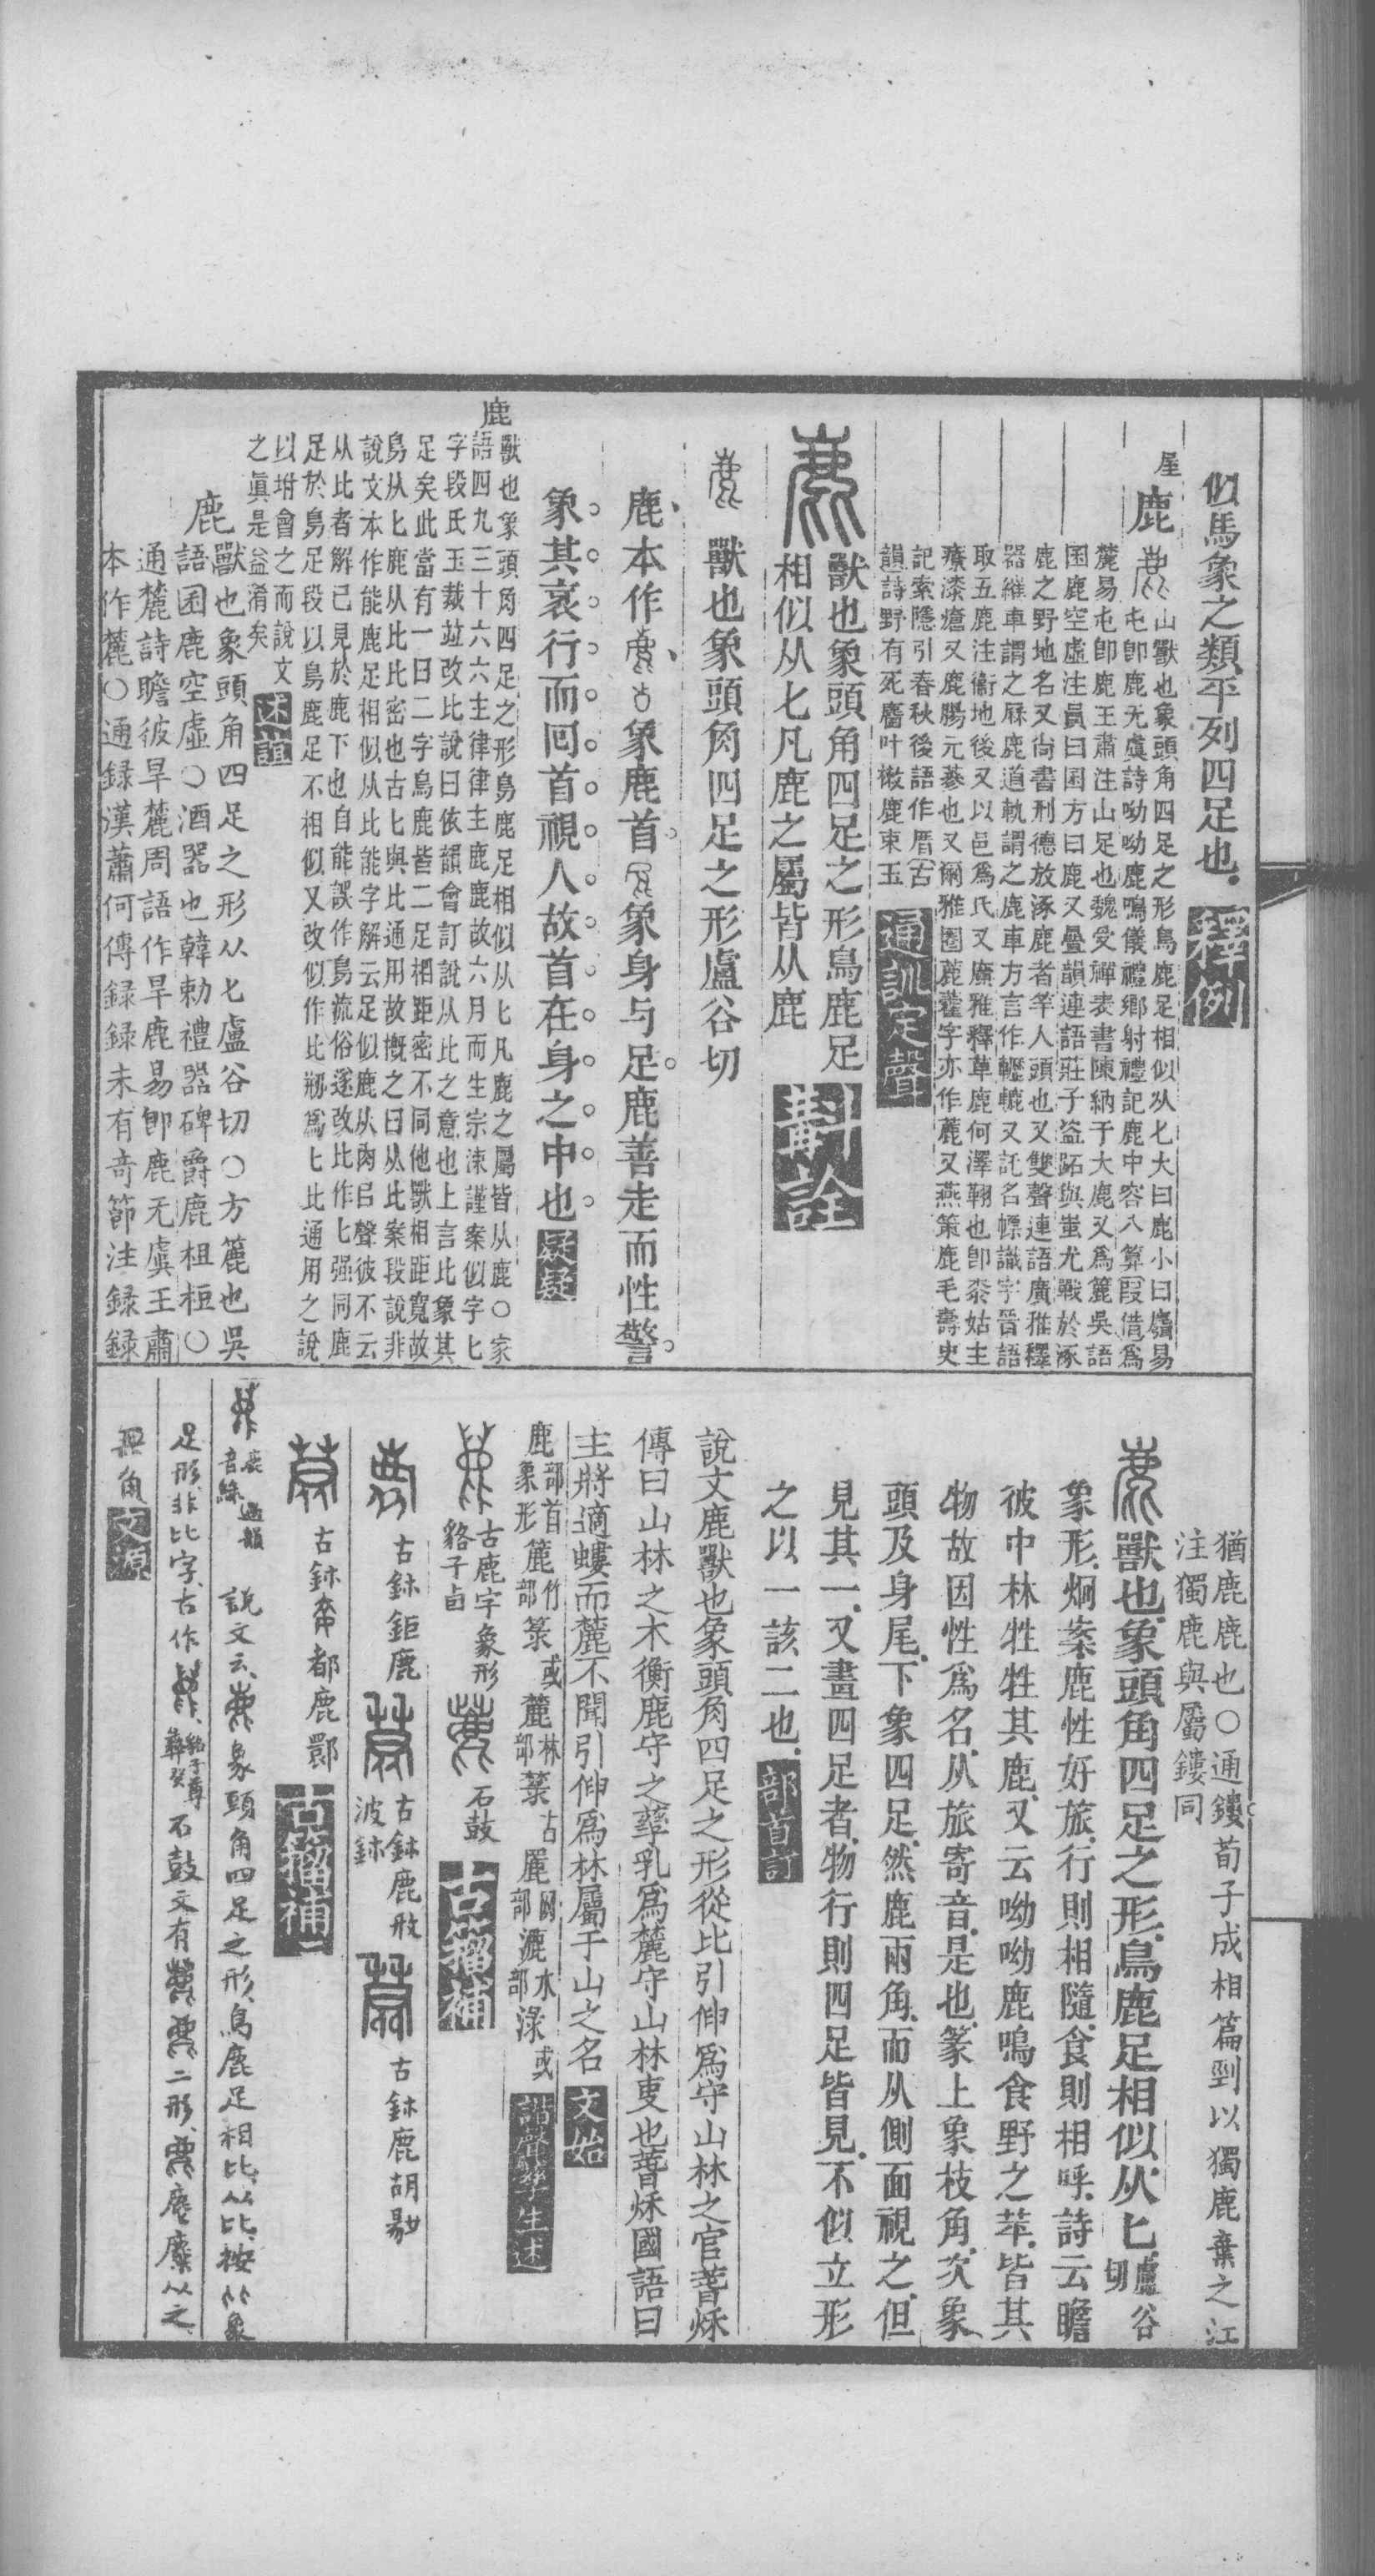 似馬象之類平列四足也釋例
屋
鹿
山獸也象頭角四足之形鳥鹿足相似从匕大曰鹿小曰麛易
屯卽鹿无虞詩呦呦鹿鳴儀禮鄉射禮記鹿中容八算叚借爲
麓易屯卽鹿王肅注山足也魏受禪表書陳納于大鹿又爲簏吳語
囷鹿空虛注員曰囷方曰鹿又疊韻連語莊子盜跖與蚩尤戰於涿
鹿之野地名又尙書刑德放涿鹿者竿人頭也又雙聲連語廣雅釋
器維車謂之厤鹿道軌謂之鹿車方言作轣轆又託名幖識字晉語
取五鹿注衞地後又以邑爲氏又廣雅釋草鹿何澤翱也卽桼姑主
癢漆瘡又鹿腸元蔘也又爾雅圈蔍藿字亦作蔍又燕策鹿毛壽史
記索隱引春秋後語作厝古
韻詩野有死麕叶樕鹿束玉
通訓定聲
獸也象頭角四足之形鳥鹿足
相似从匕凡鹿之屬皆从鹿
斠詮
獸也象頭角四足之形盧谷切
鹿本作象鹿首象身与足鹿善走而性警
象其衺行而回首視人故首在身之中也疑疑
鹿
獸也象頭角四足之形鳥鹿足相似从匕凡鹿之屬皆从鹿○家
語四九三十六六主律律主鹿鹿故六月而生宗涑謹案似字匕
字段氏玉裁竝改比說曰依韻會訂說从比之意也上言比象其
足矣此當有一曰二字鳥鹿皆二足相距密不同他獸相距寬故
鳥从匕鹿从比比密也古匕與比通用故槪之曰从比案段說非
說文本作能鹿足相似从比能字解云足似鹿从肉㠯聲彼不云
从比者解已見於鹿下也自能誤作鳥流俗遂改比作匕强同鹿
足於鳥足段以鳥鹿足不相似又改似作比剏爲匕比通用之說
以坿會之而說文
之眞是益淆矣
述誼
鹿
獸也象頭角四足之形从匕盧谷切○方簏也吳
語囷鹿空虛○酒器也韓勅禮器碑爵鹿柤梪○
通麓詩瞻彼旱麓周語作旱鹿易卽鹿无虞王肅
本作麓○通録漢蕭何傳録録未有奇節注録録
猶鹿鹿也○通鏤荀子成相篇剄以獨鹿棄之江
注獨鹿與屬鏤同
獸也象頭角四足之形鳥鹿足相似从匕盧谷切
象形炯案鹿性好旅行則相隨食則相呼詩云瞻
彼中林牲牲其鹿又云呦呦鹿鳴食野之苹皆其
物故因性爲名从旅寄音是也篆上象枝角次象
頭及身尾下象四足然鹿兩角而从側面視之但
見其一又畫四足者物行則四足皆見不似立形
之以一該二也部首訂
說文鹿獸也象頭角四足之形從比引伸爲守山林之官萅秌
傳曰山林之木衡鹿守之孳乳爲麓守山林吏也萅秌國語曰
主將適螻而麓不聞引伸爲林屬于山之名文始
鹿部首象形簏竹部箓或麓林部菉古麗网部漉水部淥或諧聲孳生述
古鹿字象形
貉子卣
石鼓
古籀補
古鉥鉅鹿
古鉥鹿㱾
波鉥
古鉥鹿胡
古鉥都鹿
古籀補
鹿遇韻
音綠
說文云象頭角四足之形鳥鹿足相比从比按象
足形非比字古作貉子尊彝癸石鼓文有二形麀麋从之
無角文源